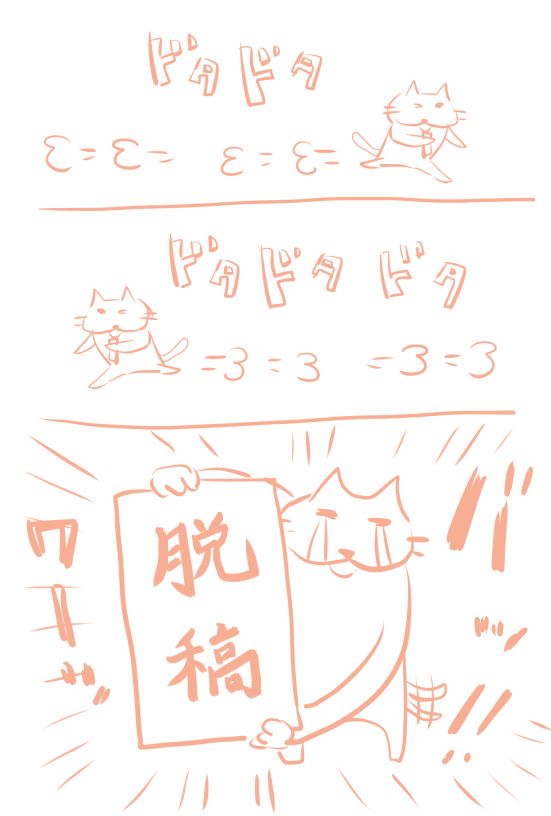 ドタドタ
ドタドタドタ
バッ!!
脱稿
ワーッ